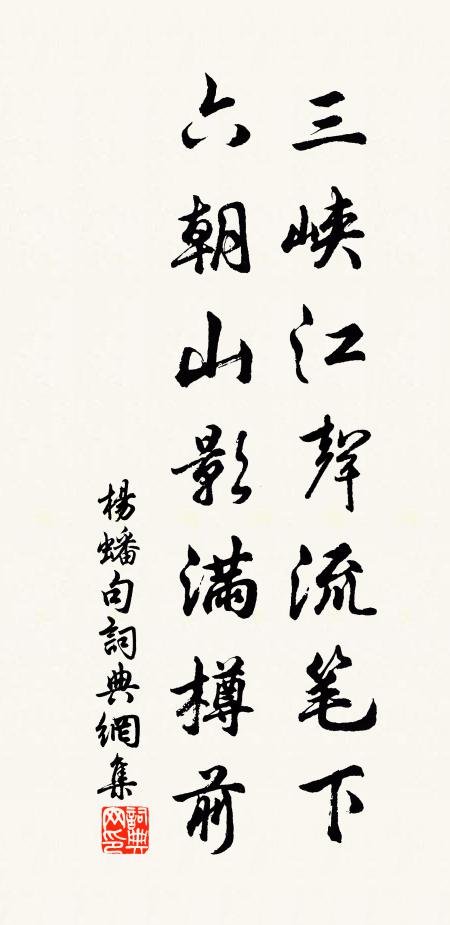 三峽江聲流笔下
六朝山影滿樽前
楊蟠句詞典網集
詞典网印